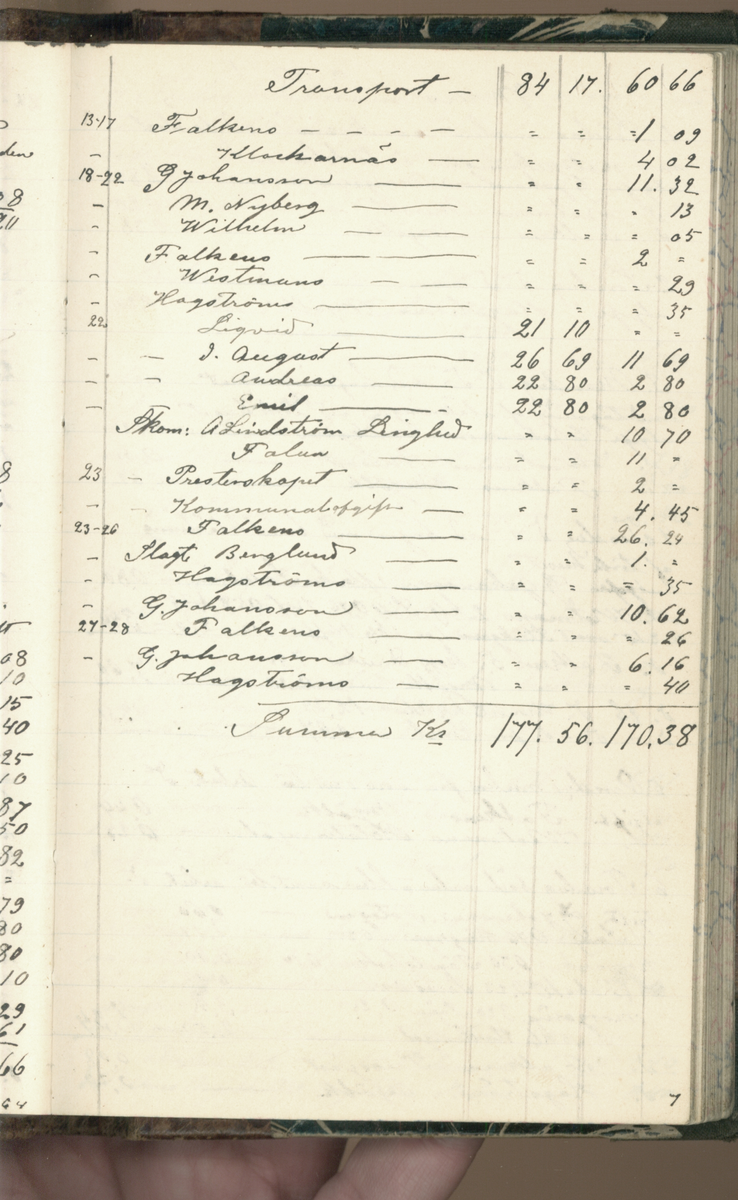 Transport – 84 17. 60 66
13-17 Falkens – – – – = = =1 09
– Klockarnäs — = = 4 02
18-22 G Johansson — " " 11. 32
– M. Nyberg — = = " 13
– Wilhelm — — = = = 05
– Falkens — — = = 2 =
– Westmans — = = = 29
– Hagströms — = = = 35
22 Liqvid — 21 10 = =
– – J. August — 26 69 11 69
– " Andreas — 22 80 2 80
– Emil — 22 80 2 80
A Lindström Linghed " " 10 70
Falun — = = 11 "
23 – Presterskapet — = = 2 =
– Kommunalafgift — " " 4. 45
23-26 Falkens — " " 26. 24
– Slagt Berglund — " " 1. =
– Hagströms — " " = 35
– G. Johansson — " " 10. 62
27-28 Falkens — " " " 26
– G. Johansson — " " 6. 16
Hagströms — = = = 40
Summa Kr 177. 56. 170.38
7
8
08
10
15
40
25
10
87
50
82
=
79
80
80
10
29
61
66